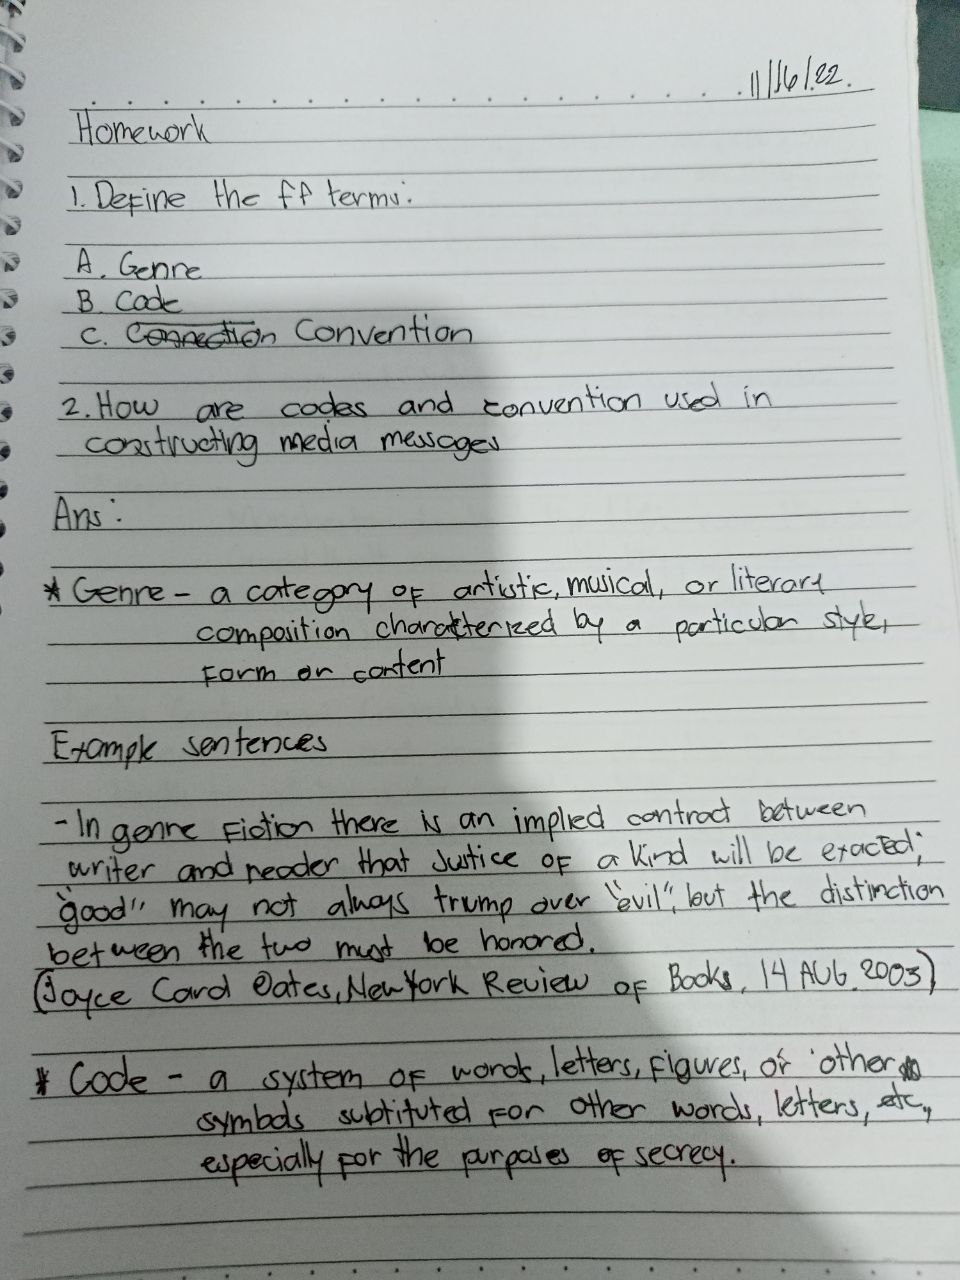 11/16/22.
Homework
1. Define the ff terms:
A. Genre
B. Code
C. Connection Convention
2. How are codes and convention used in
constructing media messages
Ans:
* Genre - a category of artistic, musical, or literary
composition characterized by a particular style,
form or content
Example sentences
- In genre fiction there is an implied contract between
writer and reader that justice of a kind will be exacted;
"good" may not always trump over "evil", but the distinction
between the two must be honored.
(Joyce Carol Oates, New York Review of Books, 14 AUG. 2003)
* Code - a system of words, letters, figures, or other
symbols subtituted for other words, letters, etc.,
especially for the purposes of secrecy.